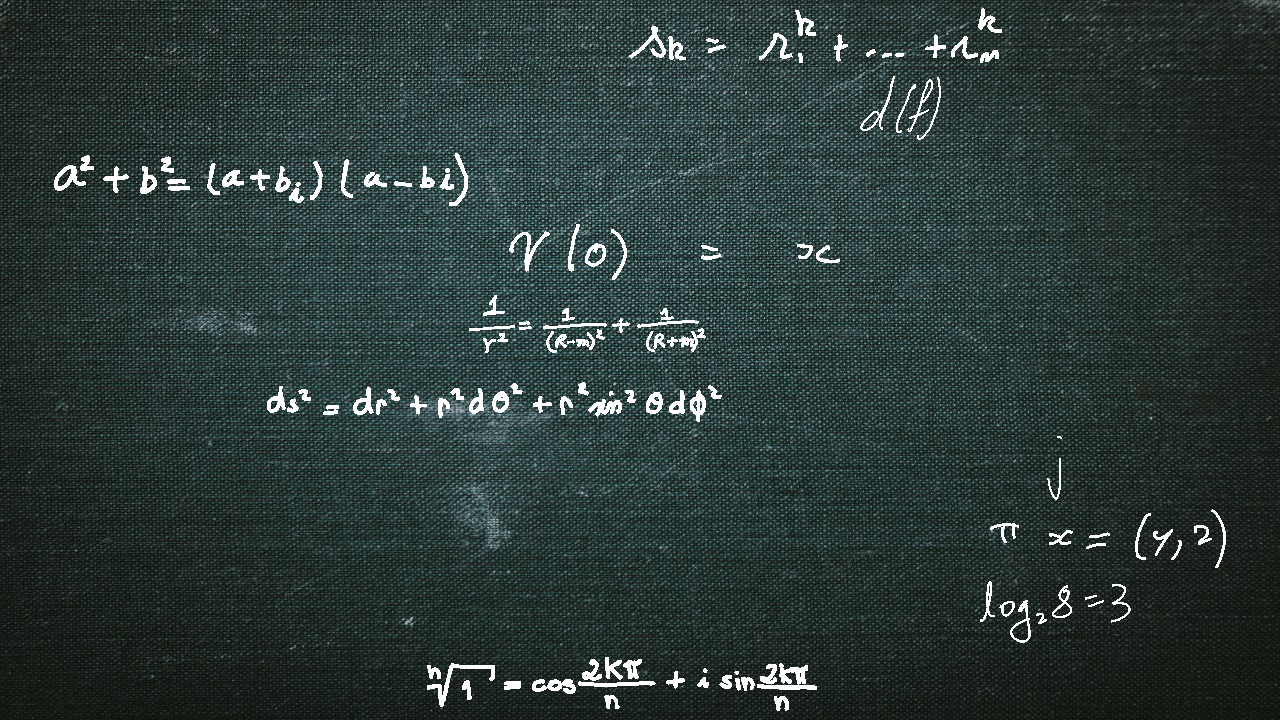 sk = r₁ᵏ + ... + rₙᵏ
d(f)
a² + b² = (a + bi) (a - bi)
γ(0) = x
1/r² = 1/(R-m)² + 1/(R+m)²
ds² = dr² + r²dθ² + r² sin² θ dϕ²
j
π x = (y, z)
log₂ 8 = 3
ⁿ√1 = cos 2kπ/n + i sin 2kπ/n